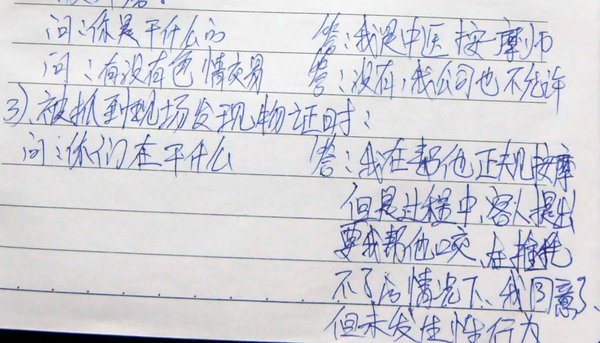 问:你是干什么的 答:我是中医按摩师
问:有没有色情交易 答:没有,我公司也不允许
3)、被抓到现场发现物证时:
问:你们在干什么 答:我在帮他正规按摩
但是过程中客人提出
要我帮他咬,在推托
不了后情况下、我同意了、
但未发生性行为